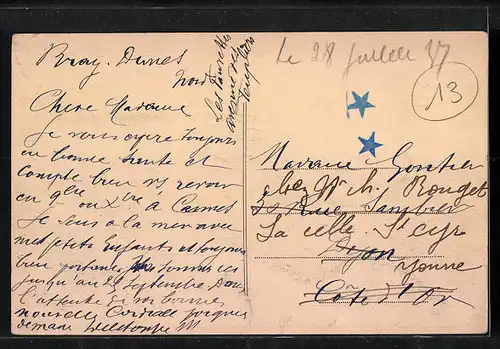 Le 28 juillet 37
13
Bray-Dunes
Nord
Les
avenue des
Chère Madame
je vous espère toujours
en bonne santé et
compte bien vs revoir
en 9bre ou Xbre à Cannes
Je suis à la mer avec
mes petits enfants et toujours
bien portante sommes ici
jusqu'au 25 Septembre Dans
l'attente de vos bonnes
nouvelles Cordiale
Madame Gontier
chez Mr h. Rouget
30 Rue
La celle St Cyr
Dijon
Yonne
Côte d'Or